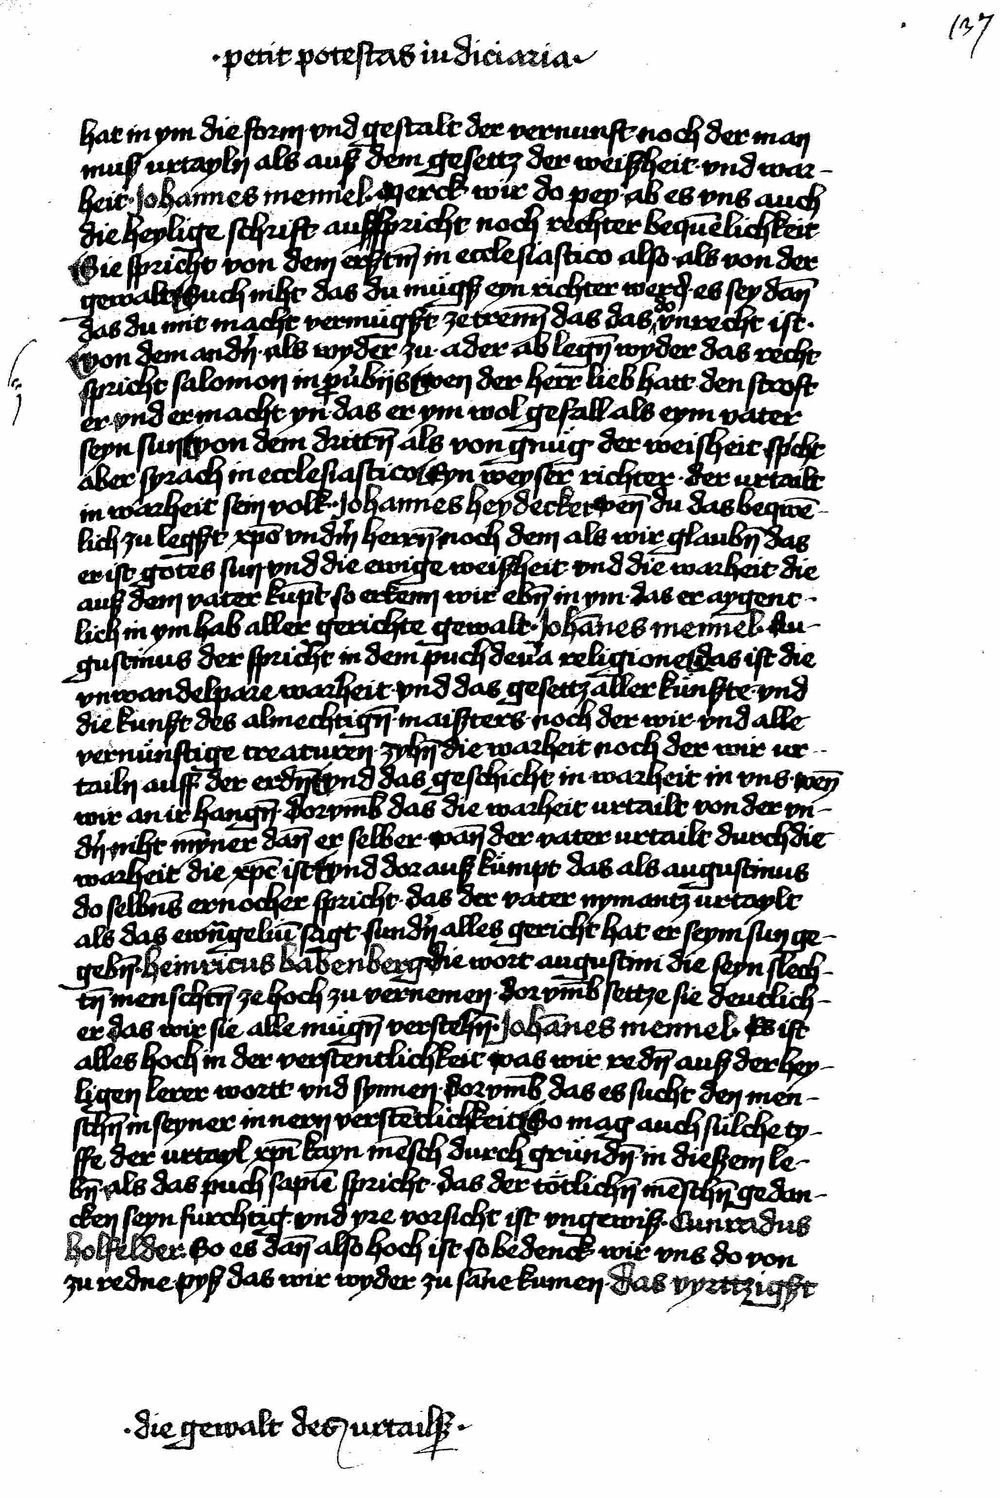 137
·petit potestas iudiciaria·
hat in ym die form vnd gestalt der vernunft noch der man
muß vrtayln als auß dem gesettz der weißheit vnd war-
heit· Johannes mennel· Merck wir do pey ab es vns auch
die heylige schrift ausspricht noch rechter beque͂lichkeit
Sie spricht von dem erstn̄ in ecclesiastico also als von der
gewalt Such niht das du mügst eyn richter werd̄ es sey dan̄
das du mit macht vermügst zetrenn̄ das das do vnrecht ist·
von dem andn̄ als wyder zu ader ab legn̄ wyder das recht
spricht salomon in ꝓu̇biis wen der herr lieb hatt den strost
er vnd er macht yn das er ym wol gefall als eym vater
seyn sun von dem drittn̄ als von gnüg der weisheit spicht
aber syrach in ecclesiastico Eyn weyser richter der vrtailt
in warheit sein volk· Johannes heydecker wen̄ du das beqwe͂-
lich zu legst xp̄o vndn̄ herrn̄ noch dem als wir glaubn̄ das
er ist gotes sun vnd die ewige weißheit vnd die warheit die
auß dem vater kūpt so erkenn wir ebn̄ in ym das er aygent-
lich in ym hab aller gerichte gewalt· Joha͂nes mennel· Au-
gustinus der spricht in dem puch de vͤa religione das ist die
vnwandelpare warheit vnd das gesettz aller künste vnd
die kunst des almechtign̄ maisters noch der wir vnd alle
vernünftige creaturen zyhn̄ die warheit noch der wir ur-
tailn auff der erdn̄ vnd das geschicht in warheit in vns wen̄
wir an ir hangn̄ dorvmb das die warheit urtailt von der yn-
dn̄ niht mȳner dan̄ er selber wan̄ der vater urtailt durch die
warheit die xp̄c ist vnd dorauß kümpt das als augustinus
do selbns̄ ernocher spricht das der vater nymantz vrtaylt
als das ewn̄geliu͂ sagt sundn̄ alles gericht hat er seym sun ge-
gebn̄· heinricus babenberg die wort augustini die seyn slech-
tn̄ menschn̄ ze hoch zu vernemen dorvm͂b settze sie deutlich-
er das wir sie alle mügn̄ verstehn̄· Joha͂nes mennel· Es ist
alles hoch in der verstentlichkeit was wir redn̄ auß der hey-
ligen lerer wortt vnd synnen dorvm͂b das es sucht den men-
schn̄ in seyner innern verste͂tlichkeit So mag auch sülche ty-
ffe der urtayl xp̄i kayn me͂sch durch gründn̄ in dießem le-
bn̄ als das puch sapie͂ spricht das der tötlichn̄ me͂schn̄ gedan-
cken seyn furchtig vnd yre vorsicht ist vngewiß· Cunradus
holfelder· So es dan̄ also hoch ist so bedenck wir vns do von
zu redne pyß das wir wyder zu sa͂ne kumen das vyrttzigst
·die gewalt des urtailß·